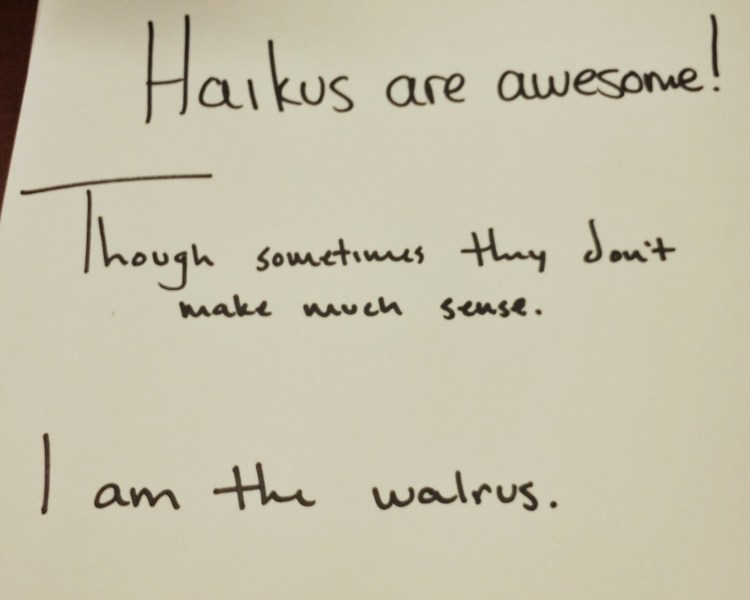 Haikus are awesome!
Though sometimes they don't
make much sense.
I am the walrus.